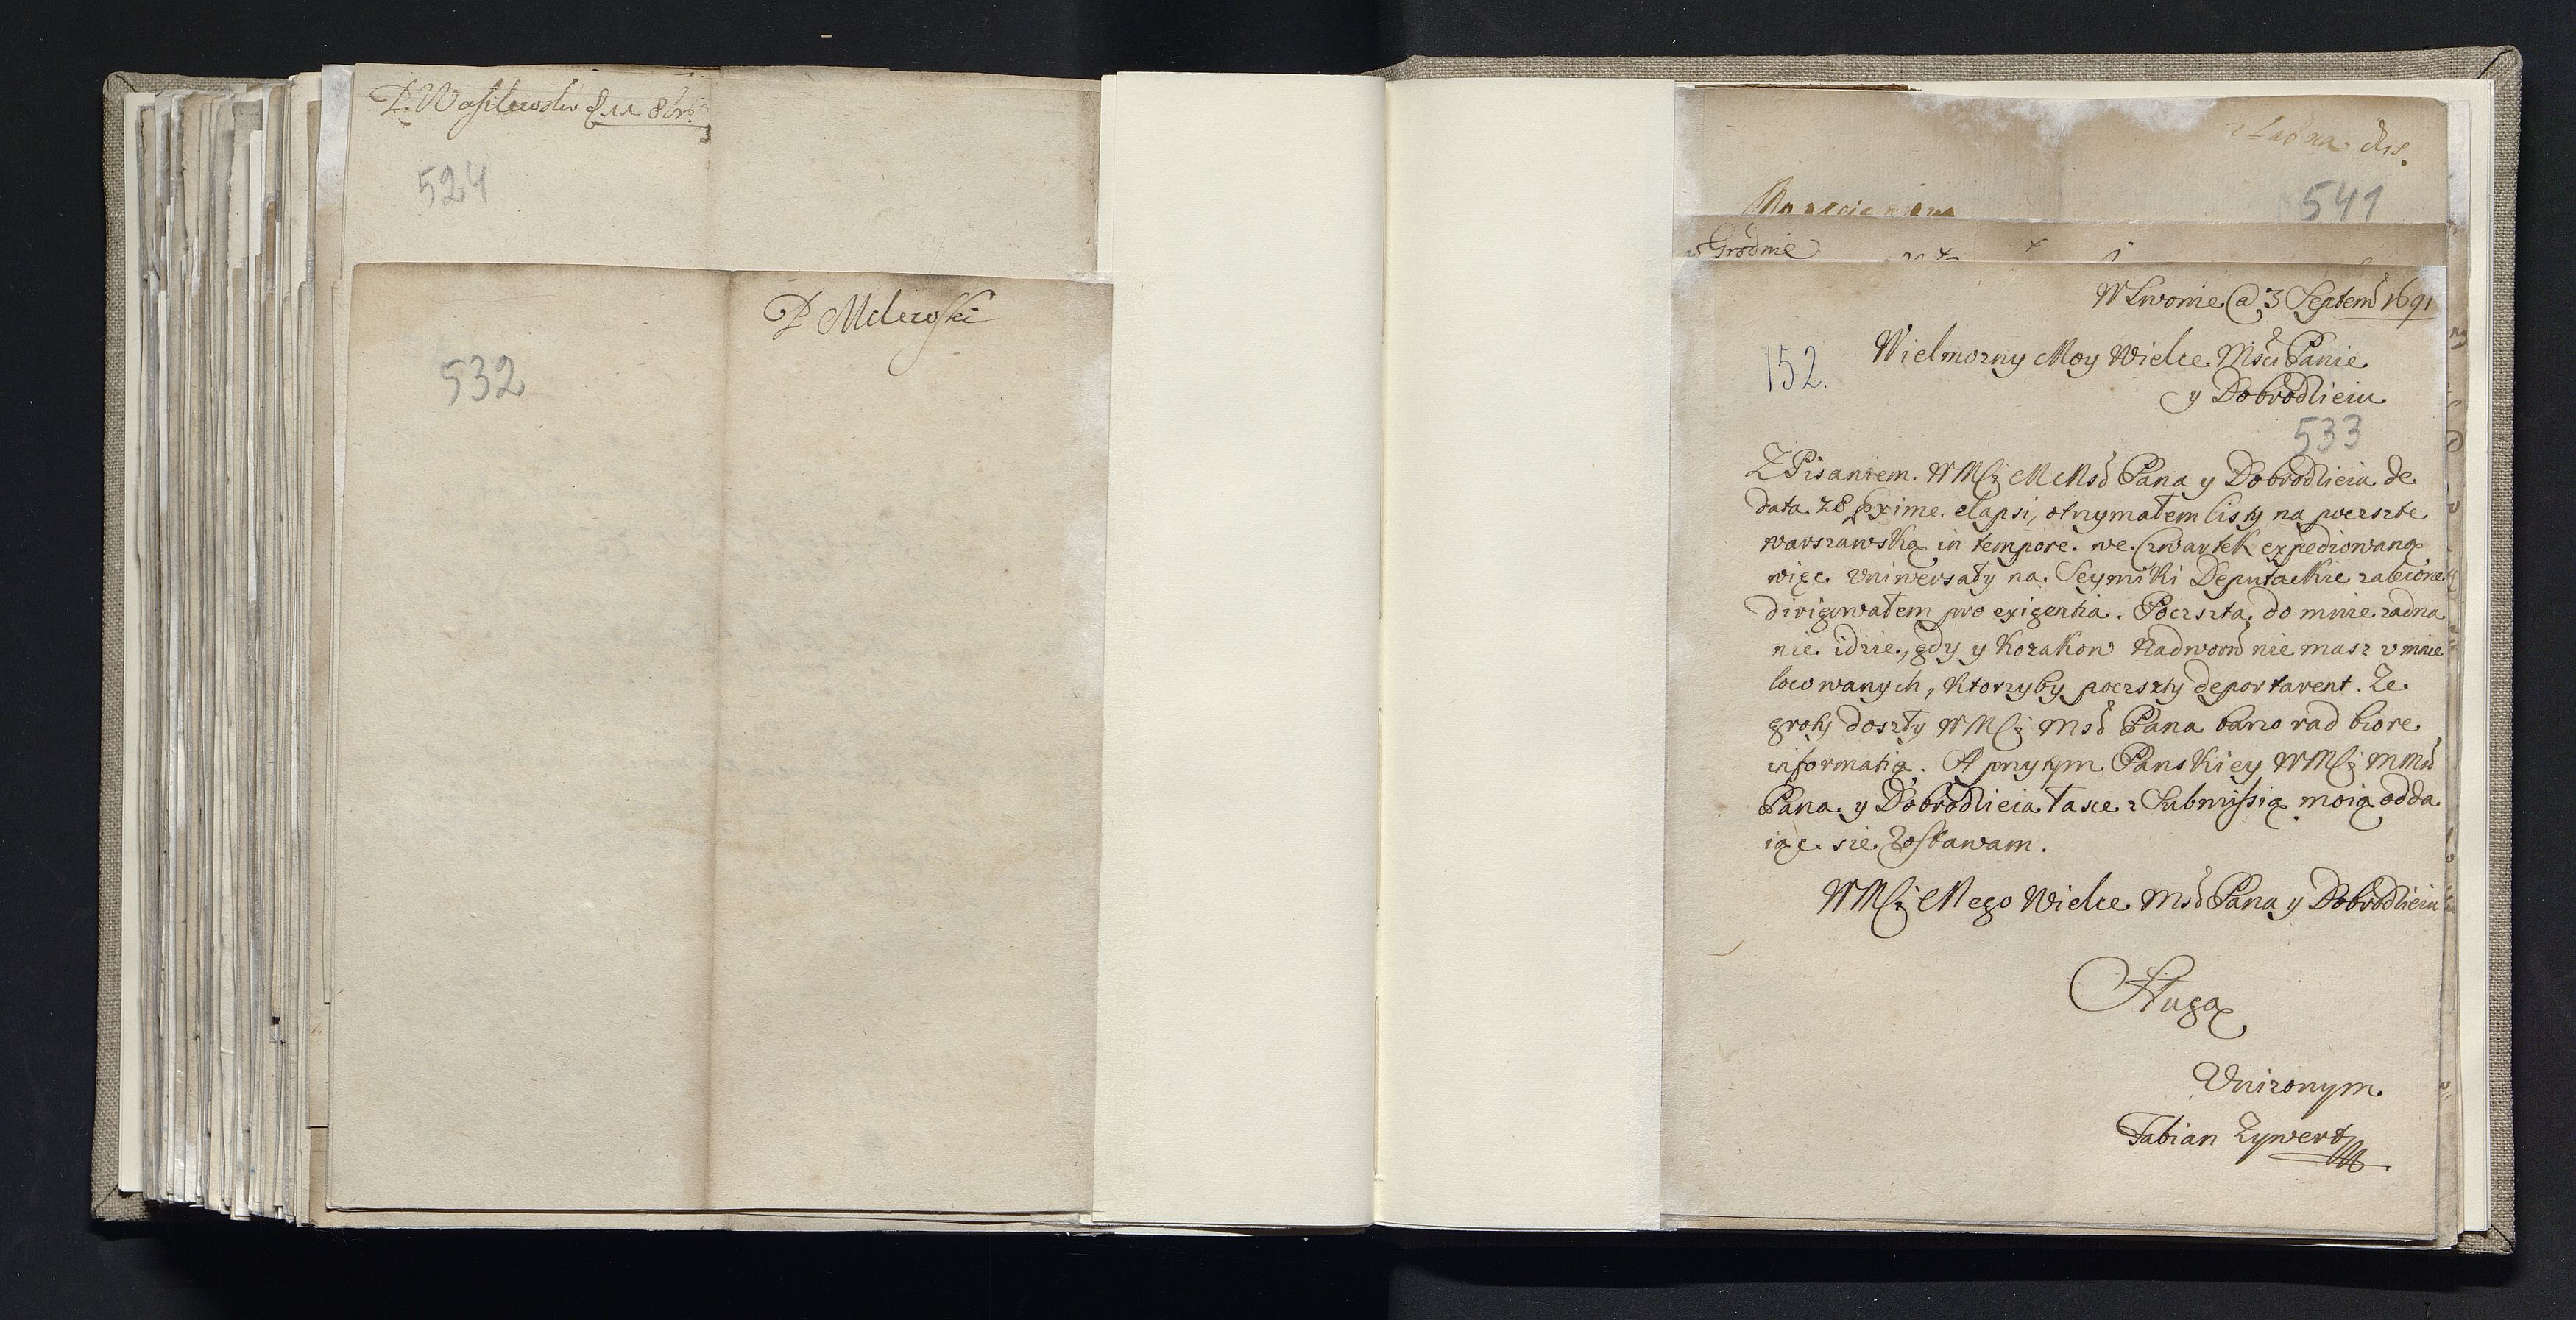 P. Wasilewski d 11 8br.
524
P Milewski
532
541
w Grodnie
W Lwowie @ 3 Septem 1691
152.
Wielmozny Moy Wielce Msci Panie
y Dobrodzieiu
533
Z Pisaniem WMsci MMsc Pana y Dobrodzieia de
data 28 proxime elapsi, otrzymałem listy na pocrszte
warszawską in tempore we Czwartek expediowaną
więc Vniwersały na Seymiki Deputackie zalecone
dirigowałem pro exigentia. Pocrszta do mnie zadna
nie idzie, gdy y Kozakow Nadworn nie masz v mnie
locowanych, Ktorzyby pocrszty deportarent. Ze
groty doszły WMsci Msc Pana barzo rad biore
informatią. A przytym Panskiey WMsci MMsc
Pana y Dobrodzieia łasce z Submissią moią odda
iąc sie Zostawam.
WMsci Mego Wielce Msc Pana y Dobrodzieia
Sługa
Vnizonym
Fabian Zywert